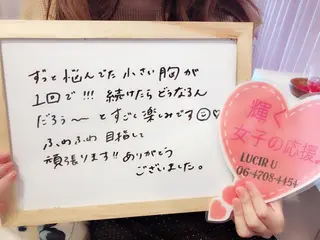 ずっと悩んでた小さい胸が
1回で!!! 続けたらどうなるん
だろぅ〜 とすごく楽しみです☺♡
ふわふわ目指して
頑張ります!! ありがとう
ございました。
輝く
女子の応援
LUCIR U
06-4708-4454